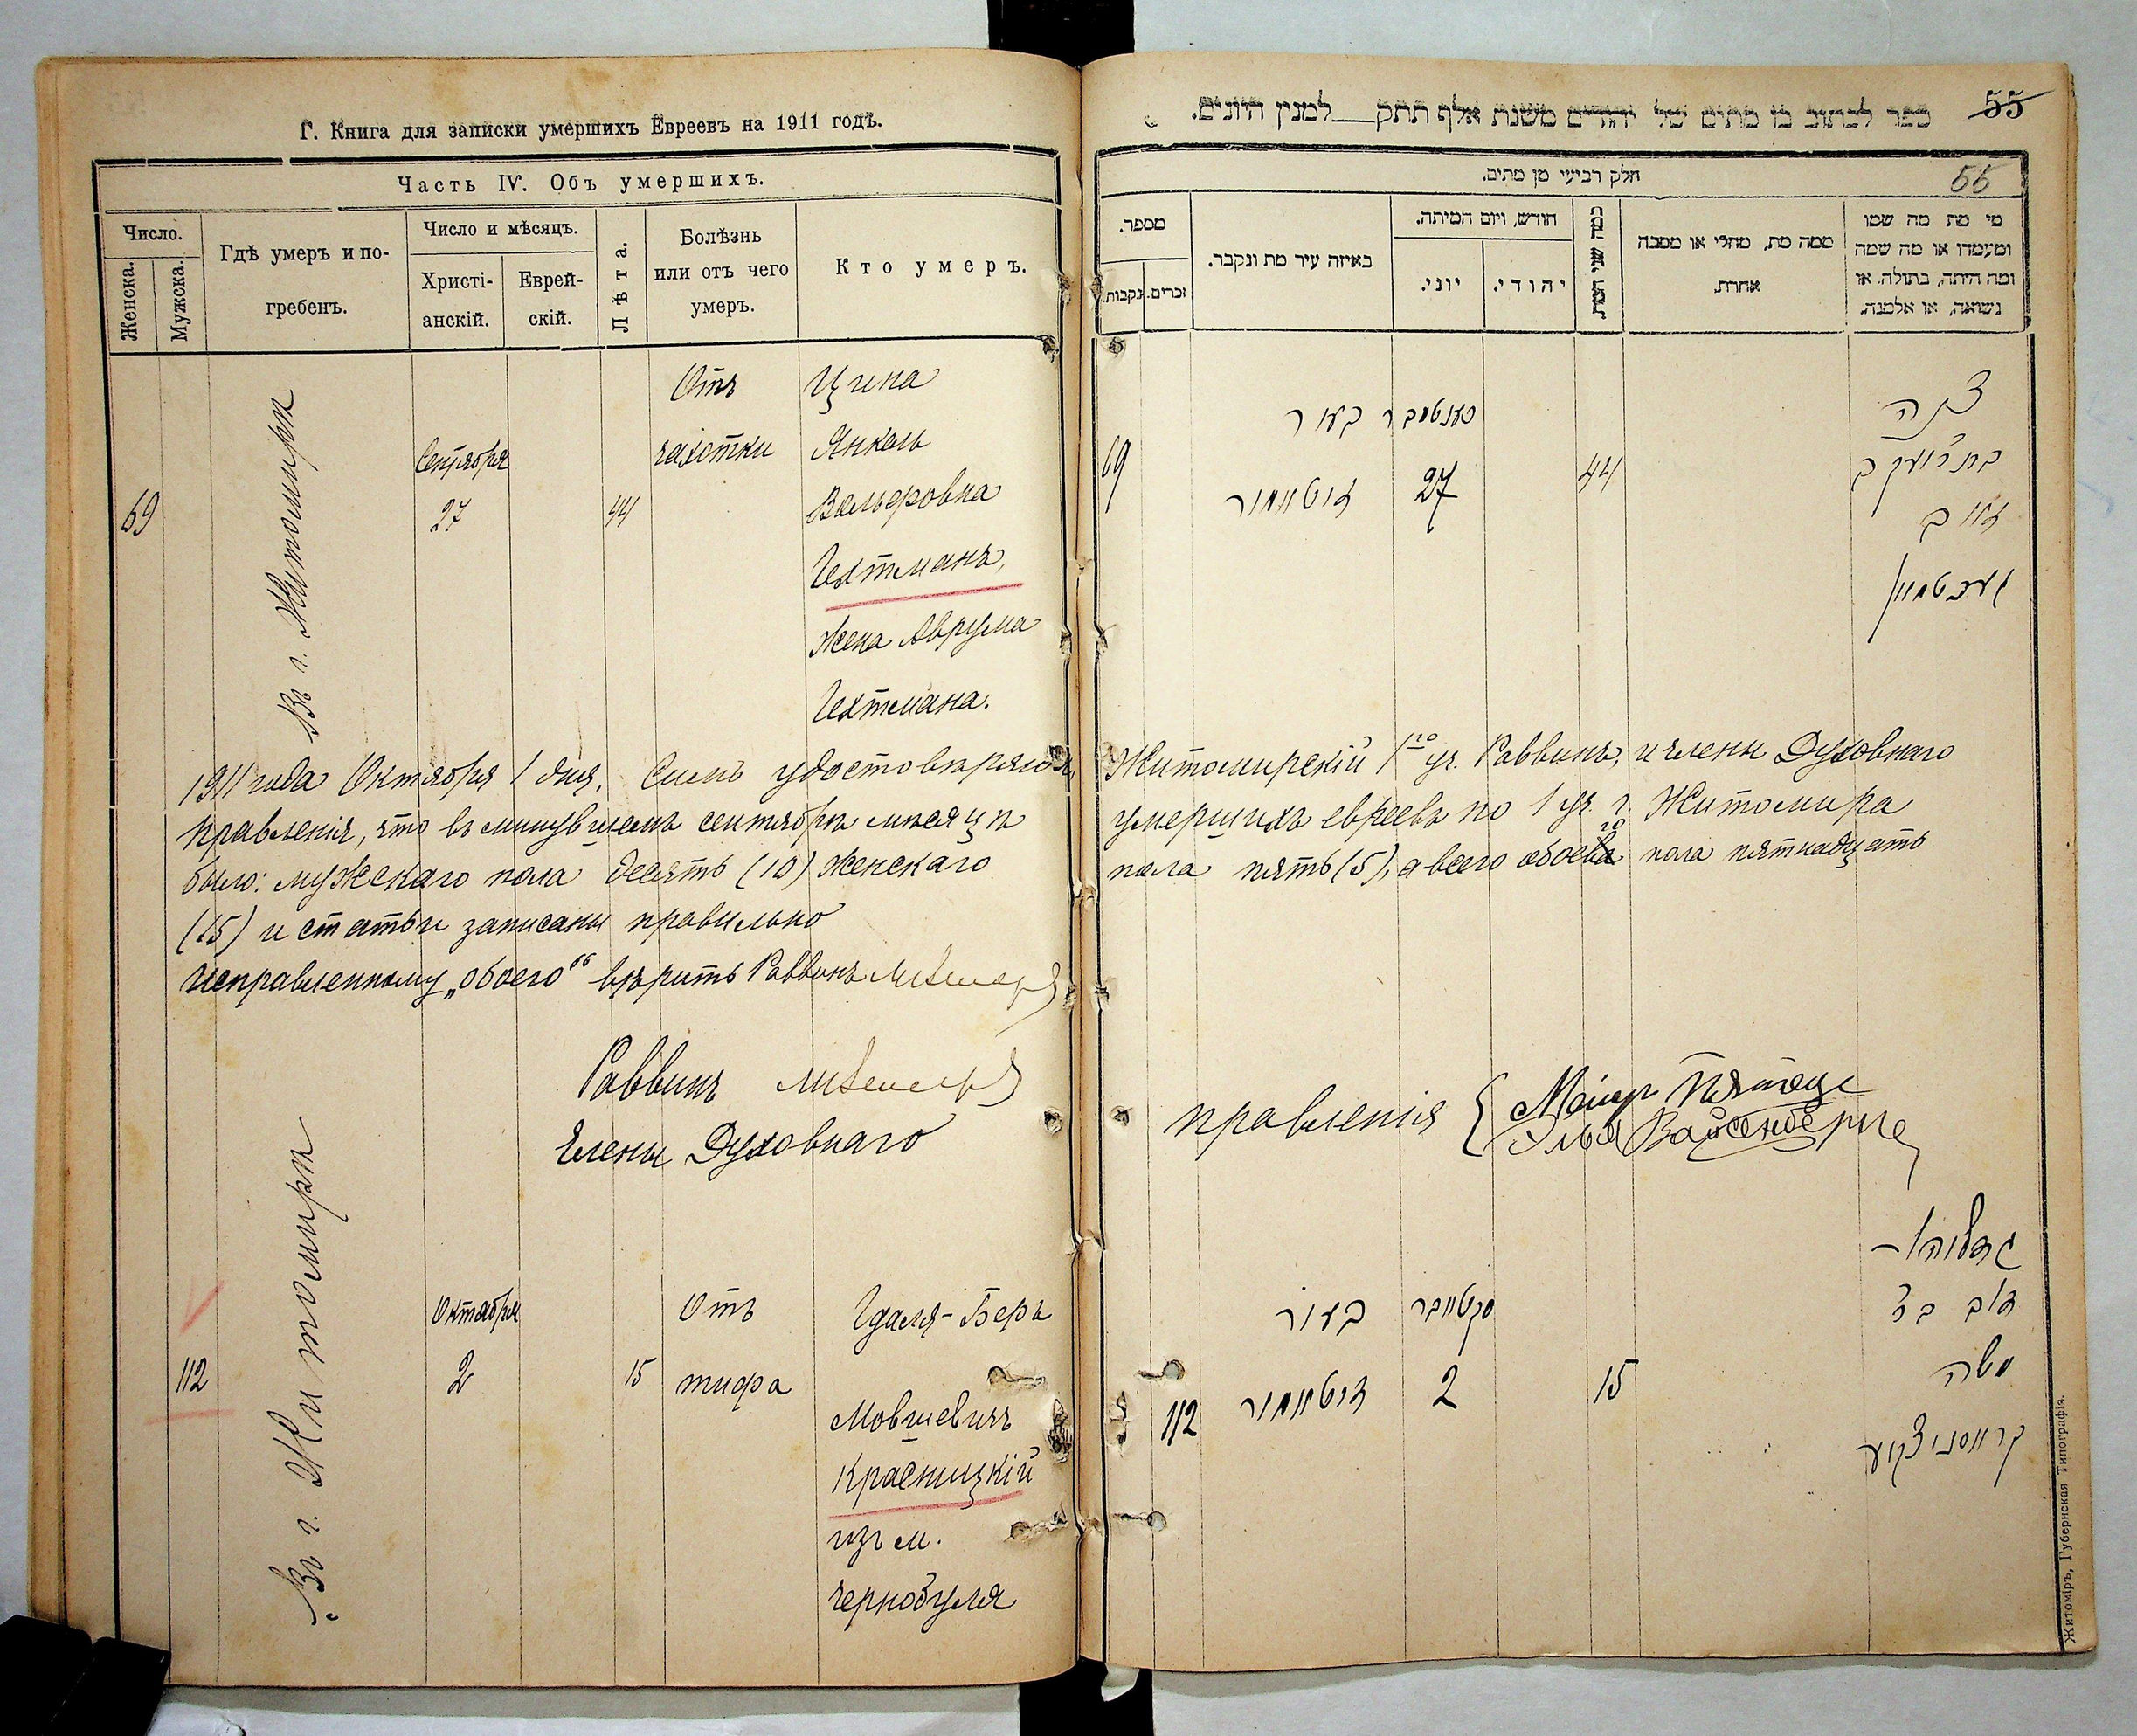 Г. Книга для записки умершихъ Евреевъ на 1911 годъ.
Часть IV. Объ умершихъ.
Число.
Женска.
Мужска.
Гдѣ умеръ и по-
гребенъ.
Число и мѣсяцъ.
Христі-
анскій.
Еврей-
скій.
Лѣта.
Болѣзнь
или отъ чего
умеръ.
Кто умеръ.
69
Въ г. Житомирѣ
Сентября
27
44
Отъ
чахотки
Цина
Янкель
Вольфовна
Гехтманъ,
жена Аврума
Гехтмана.
1911 года Октября 1 дня. Симъ удостовѣряемъ,
правленія, что въ минувшемъ сентябрѣ мѣсяцѣ
было: мужскаго пола десять (10) женскаго
(15) и статьи записаны правильно
Исправленному „обоего“ вѣрить Раввинъ
Раввинъ
Члены Духовнаго
112
Въ г. Житомирѣ
Октября
2
15
Отъ
тифа
Гдаля-Беръ
Мовшевичъ
Красницкій
изъ м.
Чернобуля
ספר לכתוב בו מתים של יהודים משנת אלף תתק למנין היונים.
55
55
חלק רביעי מן מתים.
מספר.
נקבות.
זכרים.
באיזה עיר מת ונקבר.
חודש, ויום המיתה.
יוני.
יהודי.
כמה שני המת
ממה מת, מחלי או מסבה
אחרת.
מי מת מה שמו
ומעמדו או מה שמה
ומה היתה, בתולה. או
נשואה, או אלמנה.
69
בעיר
זיטאמיר
סענטובר
27
44
צינה
בת ר׳ יעקב
זאב
געכטמאן
Житомирскій 1го уч. Раввинъ, и члены Духовнаго
умершихъ евреевъ по 1 уч. г. Житомира
пола пять (5), а всего обоего пола пятнадцать
правленія
Вайсенберге
112
בעיר
זיטאמיר
אקטאבר
2
15
גדליהו-
דוב בר
משה
קראסניצקיער
Житоміръ, Губернская Типографія.